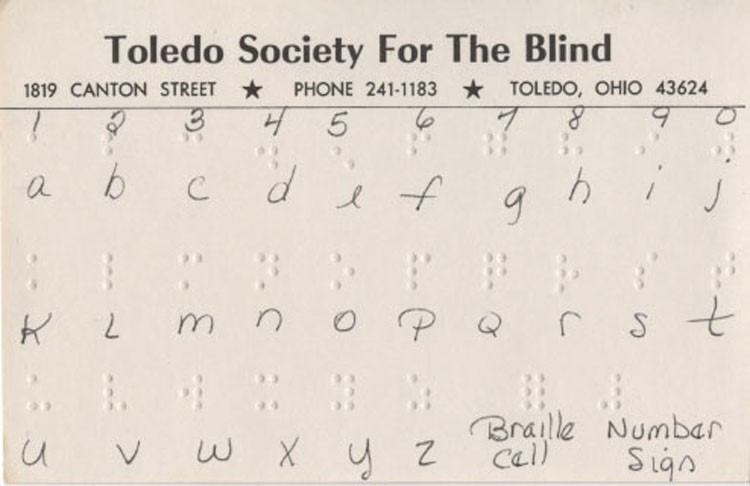 Toledo Society For The Blind
1819 CANTON STREET ★ PHONE 241-1183 ★ TOLEDO, OHIO 43624
1 2 3 4 5 6 7 8 9 0
a b c d e f g h i j
K L m n o P Q r s t
u v w x y z Braille Cell Number Sign